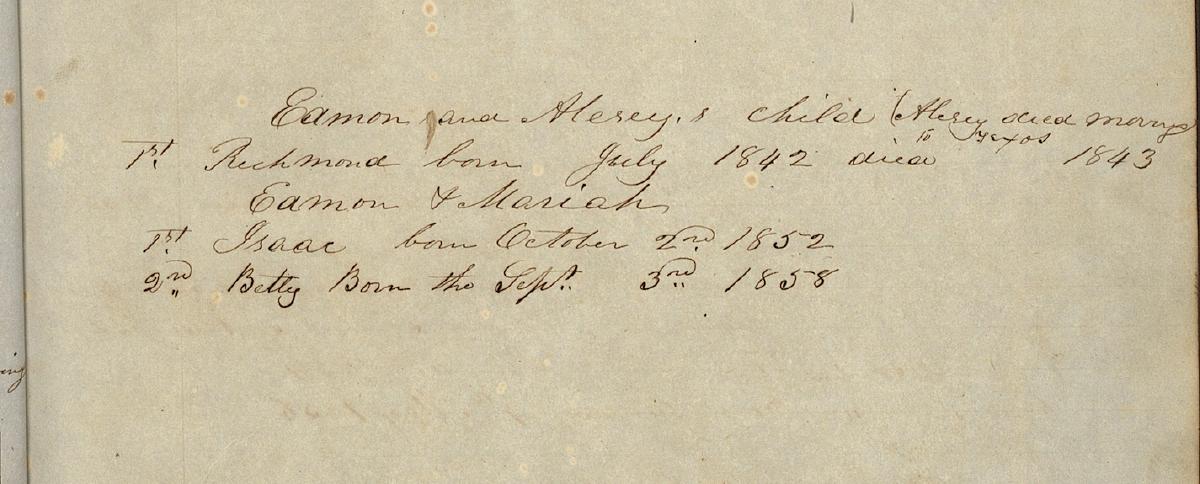 Eamon and Alesey,s child (Alesey died moving
to Texas
1st. Richmond born July 1842 died 1843
Eamon & Mariah
1st. Isaac born October 2nd 1852
2nd Betty Born the Sept. 3rd 1858
ing